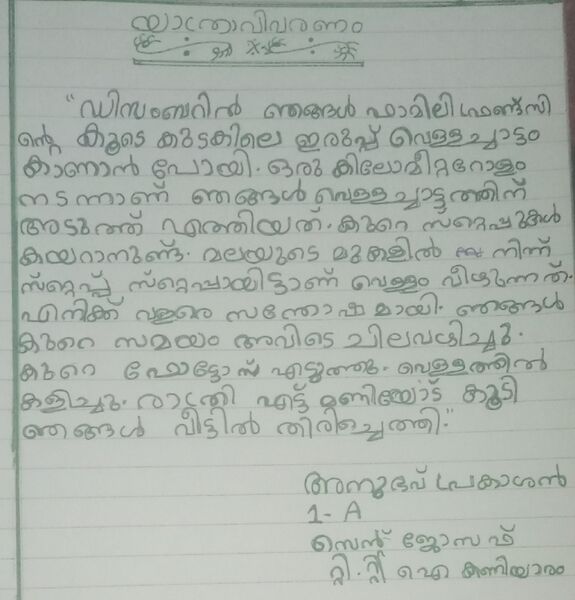 യാത്രാവിവരണം
"ഡിസംബറിൽ ഞങ്ങൾ ഫാമിലി ഫ്രണ്ട്സി
ന്റെ കൂടെ കുടകിലെ ഇരുപ്പ് വെള്ളച്ചാട്ടം
കാണാൻ പോയി. ഒരു കിലോമീറ്ററോളം
നടന്നാണ് ഞങ്ങൾ വെള്ളച്ചാട്ടത്തിന്
അടുത്ത് എത്തിയത്. കുറെ സ്റ്റെപ്പുകൾ
കയറാനുണ്ട്. മലയുടെ മുകളിൽ നിന്ന്
സ്റ്റെപ്പ് സ്റ്റെപ്പായിട്ടാണ് വെള്ളം വീഴുന്നത്.
എനിക്ക് വളരെ സന്തോഷമായി. ഞങ്ങൾ
കുറെ സമയം അവിടെ ചിലവഴിച്ചു.
കുറെ ഫോട്ടോസ് എടുത്തു. വെള്ളത്തിൽ
കളിച്ചു. രാത്രി എട്ട് മണിയോട് കൂടി
ഞങ്ങൾ വീട്ടിൽ തിരിച്ചെത്തി."
അനുഭവ് പ്രകാശൻ
1-A
സെന്റ് ജോസഫ്
റ്റി.റ്റി ഐ കണിയാരം